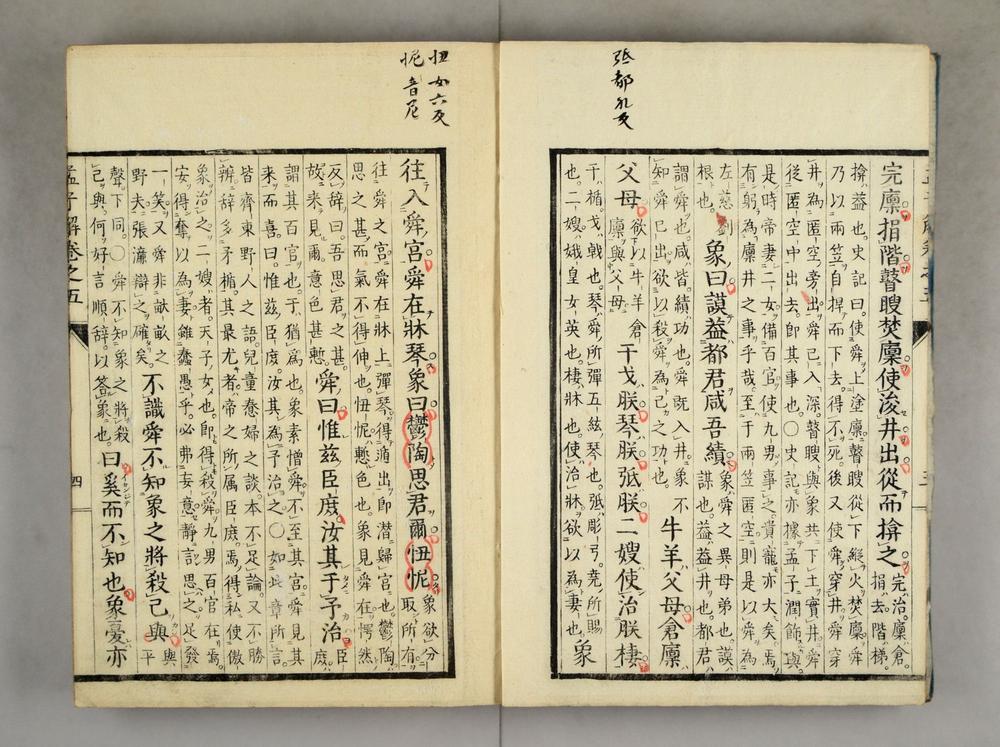 弤都礼反
完廩捐階瞽瞍焚廩使浚井出從而揜之 完治。廩倉。
捐去。階梯。
揜蓋也。史記曰。使舜上塗廩。瞽瞍從下縱火焚廩。舜
乃以兩笠自捍而下去。得不死。後又使舜穿井。舜穿
井爲匿空旁出。舜已入深。瞽瞍與象共下土實井。舜
從匿空中出去。卽其事也。〇史記亦據孟子潤飾。與
是時帝妻二女。備百官。使九男事之。貴寵亦大矣。焉
有躬爲廩井之事乎哉。至于兩笠匿空。則是以舜爲
左慈劉
根也。 象曰謨蓋都君咸吾績 象舜之異母弟也。謨
謀也。蓋蓋井也。都君
謂舜也。咸皆。績功也。舜既入井。象不
知舜已出。欲以殺舜爲己之功也。 牛羊父母倉廩
父母 欲以牛羊倉
廩與父母 干戈朕琴朕弤朕二嫂使治朕棲
干楯。戈戟也。琴舜所彈五絃琴也。弤彫弓。堯所賜
也。二嫂娥皇女英也。棲牀也。使治牀欲以爲妻也 象
忸女六反
怩音尼
往入舜宮舜在牀琴象曰鬱陶思君爾忸怩 象欲分
取所有。
往舜之宮。舜在牀上彈琴。得酒出卽潛歸宮也。鬱陶
思之甚而氣不得伸也。忸怩慙色也。象見舜在愕然
反辭曰。吾思君之甚。
故來見爾。意色甚慙。 舜曰惟茲臣庶汝其于予治 臣
庶。
謂其百官也。于猶爲也。象素憎舜。不至其宮。舜見其
來而喜曰。惟茲臣庶。汝其爲予治之。〇如此章所言。
皆齊東野人之語。兒童惷婦之談。本不足論。又不勝
辨。辭多矛楯。其最尤者。帝之所属臣庶。焉得私使傲
象治之。二嫂者。天子女也。卽得殺舜。九男百官在焉。
安得奪以爲妻。雖蠢愚乎。必弗妄意。靜言思之。足發
一笑。又舜非畝畝之
野夫。張濂辯之確矣。 不識舜不知象之將殺己與 與
平
聲。下同。〇舜不知象之將殺
己與。何好言順辭。以答象也。 曰奚而不知也象憂亦
孟子解卷之五
四